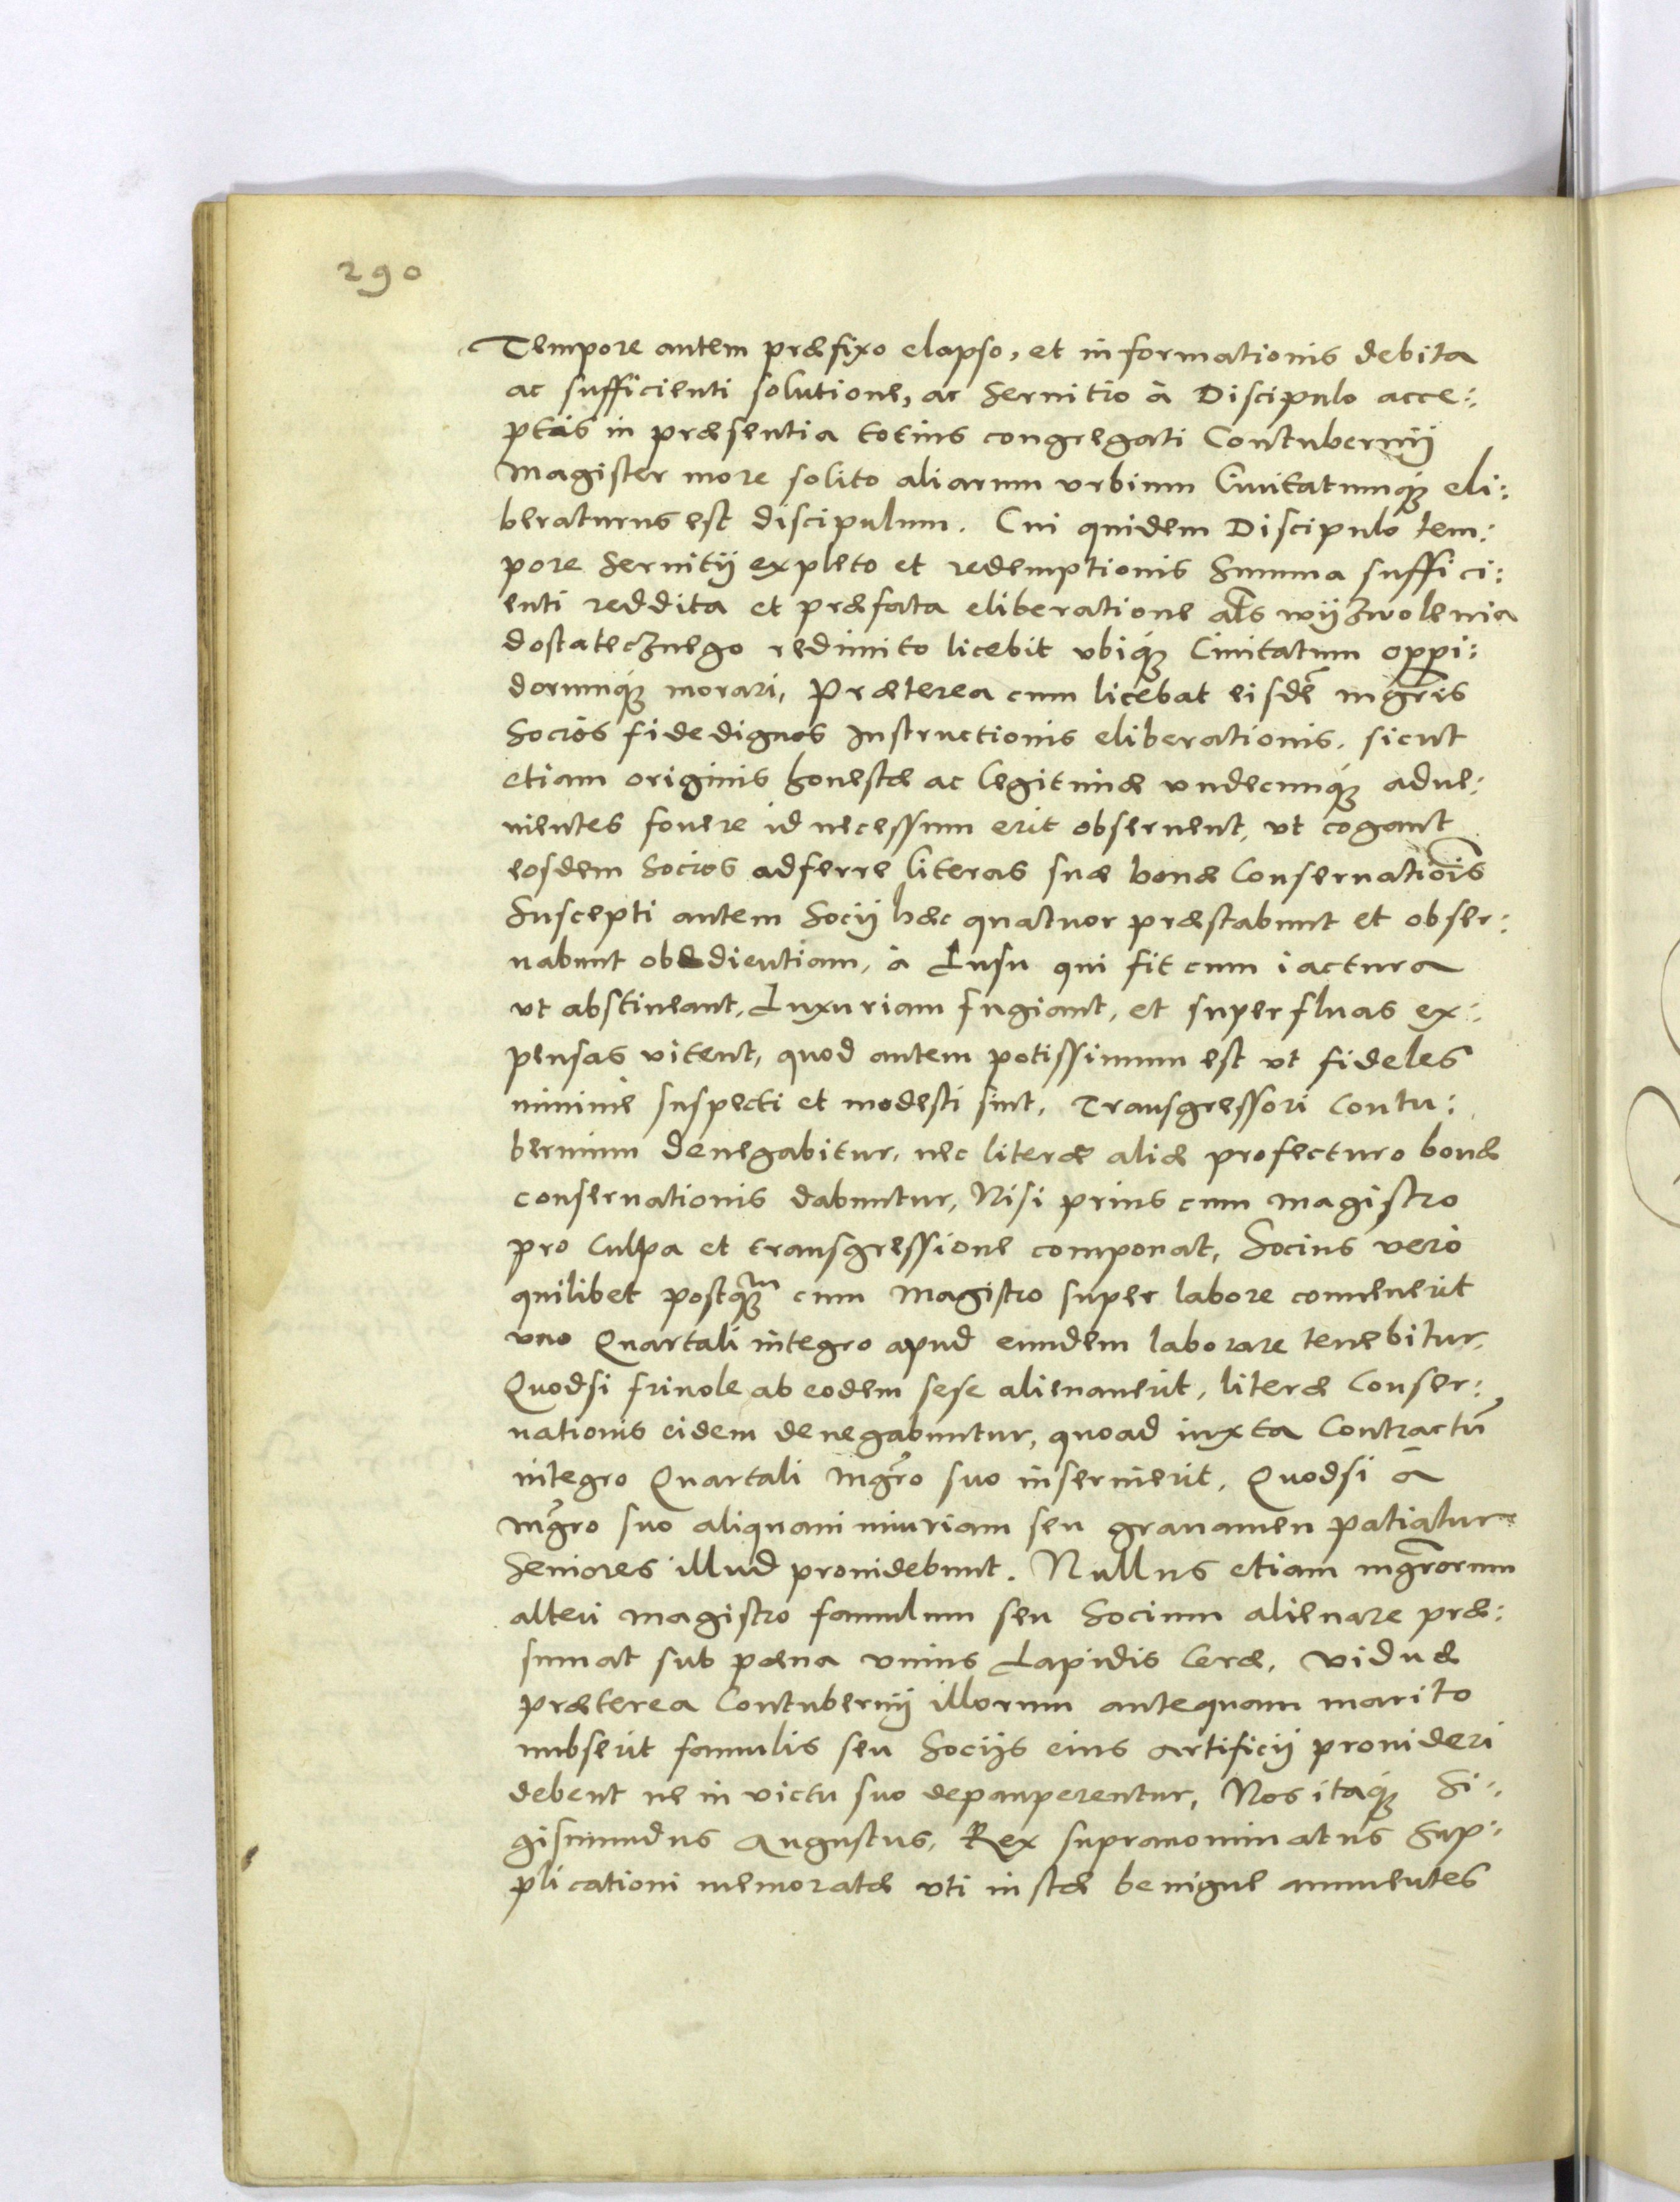 290
Tempore autem præfixo elapso, et informationis debita
ac sufficienti solutione, ac Seruitio à Discipulo acce:
ptis in præsentia totius congregati Contubernij
Magister more solito aliarum vrbium Ciuitatumq́ue eli:
beraturus est discipulum. Cui quidem Discipulo tem:
pore Seruitij expleto et redemptionis Summa suffici:
enti reddita et præfata eliberatione als wÿzwolenia
dostatecznego redimito licebit vbiq́ue Ciuitatum oppi:
dorumq́ue morari, Præterea cum licebat eisdē mgr̃is
Socios fide dignos Instructionis eliberationis. sicut
etiam originis honestæ ac legitimæ vndecumq́ue adue:
nientes fouere id necessum erit obseruent, vt cogant
eosdem Socios adferre literas suæ bonæ Conseruatiōis
Suscepti autem Socij hæc quatuor præstabunt et obser:
uabunt obedientiam, à Lusu qui fit cum iactura
vt abstineant, Luxuriam fugiant, et superfluas ex:
pensas vitent, quod autem potissimum est vt fideles
minimè suspecti et modesti sint, Transgressori Contu:
bernium denegabitur, nec literæ aliæ profecturo bonæ
conseruationis dabuntur, Nisi prius cum Magistro
pro Culpa et transgressione componat, Socius verò
quilibet postq̃uam cum Magistro super labore conuenerit
vno Quartali integro apud eundem laborare tenebitur,
Quodsi friuole ab eodem sese alienauerit, literæ Conser:
uationis eidem denegabuntur, quoad iuxta Contractū
integro Quartali Mgr̃o suo inseruierit, Quodsi à
Mgr̃o suo aliquam iniuriam seu grauamen patiatur
Seniores illud prouidebunt. Nullus etiam mgr̃orum
alteri Magistro famulum seu Socium alienare præ:
sumat sub pæna vnius Lapidis Ceræ, viduæ
præterea Contubernij illorum antequam marito
nubserit famulis seu Socijs eius artificij prouideri
debent ne in victu suo depauperentur, Nos itaq́ue Si:
gismundus Augustus, Rex supranominatus Sup:
plicationi memoratæ vti iustæ benigne annuentes